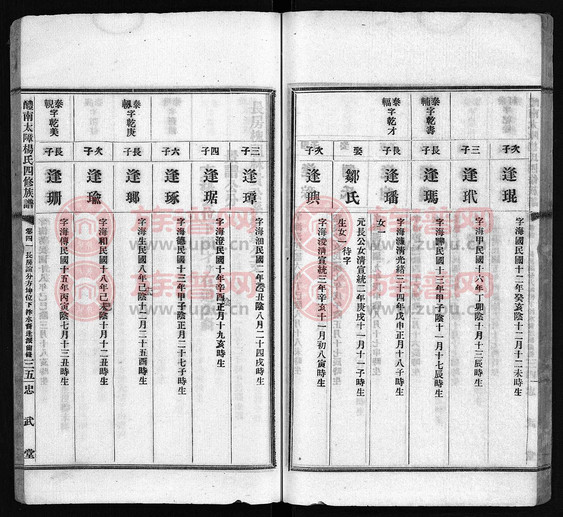 次子
逢琨
字海國民國十二年癸亥陰十二月十二未時生
三子
逢玳
字海甲民國十六年丁卯陰十月十三辰時生
泰字乾書
輔
長子
逢瑪
字海聯民國十三年甲子陰十一月十七辰時生
泰字乾才
福
長子
逢璠
字海濂清光緒三十四年戊申正月十八子時生
女一
娶
鄒氏
元長公女清宣統二年庚戌十一月十一子時生
生女一 待字
次子
逢璵
字海浚清宣統三年辛亥十一月初八寅時生
三子
逢璋
字海洳民國二年癸丑陰八月二十四戌時生
四子
逢琚
字海澄民國十年辛酉正月十九亥時生
六子
逢琢
字海德民國十三年甲子陰正月二十七子時生
泰字乾庚
長子
逢瑯
字海生民國八年己未陰十二月二十五酉時生
次子
逢瑜
字海和民國十八年己巳陰十月十二丑時生
泰字乾美
覬
長子
逢珊
字海傳民國十五年丙寅陰七月十三丑時生
醴南太障楊氏四修族譜
卷四
三五一
忠武堂
族譜網
www.zupu.cn
族譜網
www.zupu.cn